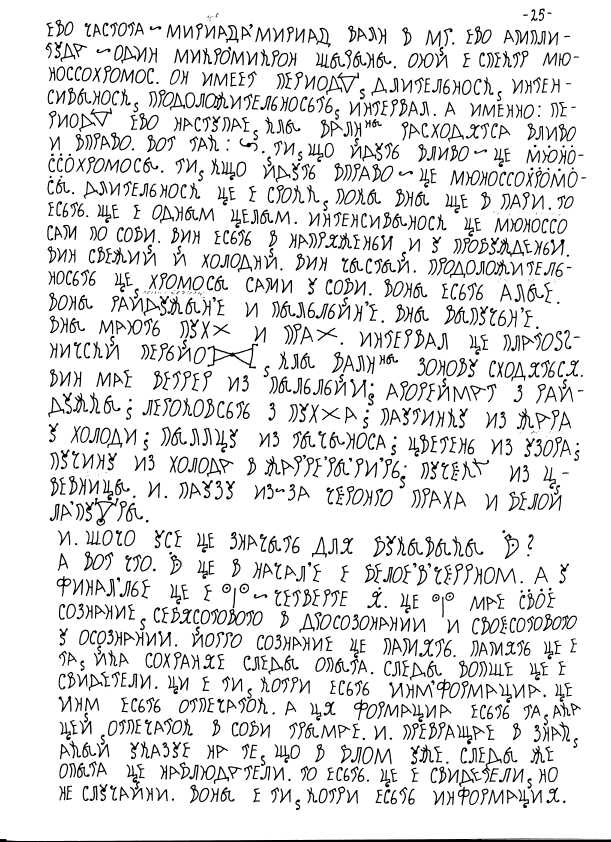 -25-
ЕВО ЧАСТОТА~МИРИАДА'МИРИАД ВАЛН В МГ. ЕВО АМПЛИ-
ТУДА ~ОДИН МИКРОМИКРОН ШЫРЫНЫ. ОКОЙ Е СПЕКТР МЮ-
НОССОХРОМОС. ОН ИМЕЕТ ПЕРИОД, ДЛИТЕЛЬНОСЬ, ИНТЕН-
СИВЫНОСЬ, ПРОДОЛОЖИТЕЛЬНОСЬТЬ, ИНТЕРВАЛ. А ИМЕННО: ПЕ-
РИОД ЕВО НАСТУПАЕ, КЛЫ ВАЛНЫ РАСХОДЯТСА ВЛИВО
И ВПРАВО. ВОТ ТАК: . ТИ, ЩО ЙДУТЬ ВЛИВО~ЦЕ МЮНО-
ССОХРОМОСЫ. ТИ, КЩО ЙДУТЬ ВПРАВО~ЦЕ МЮНОССОХРОМО-
СЫ. ДЛИТЕЛЬНОСЬ ЦЕ Е СРОКК, ПОКЫ ВНЫ ЩЕ В ПАРИ. ТО
ЕСЬТЬ. ЩЕ Е ОДНЫМ ЦЕЛЫМ. ИНТЕНСИВЫНОСЬ ЦЕ МЮНОССО
САМ ПО СОБИ. ВИН ЕСЬТЬ В НАПРЯЖЕНЬИ И У ПРОБУЖДЕНЬИ.
ВИН СВЕЖИЙ Й ХОЛОДНЙ. ВИН ЧЫСТЫЙ. ПРОДОЛОЖИТЕЛЬ-
НОСЬТЬ ЦЕ, ХРОМОСЫ САМИ У СОБИ. ВОНЫ ЕСЬТЬ АЛЫЕ.
ВОНЫ РАЙДУЖЫН'Е И ПЫЛЬЛЬЙН'Е. ВНЫ ВЫПУЧЬН'Е.
ВНЫ МАЮТЬ ПУХ И ПРАХ. ИНТЕРВАЛ ЦЕ ПЛАТОЗГ-
НИЧСКЙ ПЕРЬЙО, КЛЫ ВАЛНЫ ЗОНОВУ СХОДЯТЬСЯ.
ВИН МАЕ ВЕТРЕР ИЗ ПЫЛЬЛЬЙИ; АРОРЕЙМАТ З РАЙ-
ДУЖКЫ; ЛЕГОКОВСЬТЬ З ПУХХА; ПАУТИНКУ ИЗ ЖАРА
У ХОЛОДИ; ПЫЛЛЦУ ИЗ ТЫЧЫНОСА; ЦВЕТЕНЬ ИЗ УЗОРА;
ПУЧИНУ ИЗ ХОЛОДА В ЖАРРЕРЫРИРЬ; ПУЧЕК ИЗ Ц-
ВЕВНИЦЫ. И. ПАУЗУ ИЗ~ЗА ЧЕРОНГО ПРАХА И БЕЛОЙ
ЛАПУРЫ.
И. ШОЧО УСЕ ЦЕ ЗНАЧЫТЬ ДЛЯ БУКЫВЫКЫ В?
А ВОТ ЧТО. В ЦЕ В НАЧАЛ'Е Е БЕЛОЕ'В'ЧЕРРНОМ. А У
ФИНАЛ'ЛЬЕ ЦЕ Е ~ЧЕТВЕРТЕ Я. ЦЕ МАЕ СВОЁ
СОЗНАНИЕ, СЕБЯСОТОВОТО В ДТОСОЗОНАНИИ И СВОЕСОТОВОТО
У ОСОЗНАНИИ. ЙОГГО СОЗНАНИЕ ЦЕ ПАМЯТЬ. ПАМЯТЬ ЦЕ Е
ТА, ЙКА СОХРАНЯЕ СЛЕДЫ ОПЫТА. СЛЕДЫ ВОПЩЕ ЦЕ Е
СВИДЕТЕЛИ. ЦИ Е ТИ, КОТРИ ЕСЬТЬ ИНМ'ФОРМАЦИА. ЦЕ
ИНМ ЕСЬТЬ ОТПЕЧАТОК. А ЦЯ ФОРМАЦИА ЕСЬТЬ ТА, АКА
ЦЕЙ, ОТПЕЧАТОК В СОБИ ТРЫМАЕ. И. ПРЕВРАЩАЕ В ЗНАК,
АКЫЙ УКАЗУЕ НА ТЕ, ЩО В БЛОМ УЖЕ. СЛЕДЫ ЖЕ
ОПЫТА ЦЕ НАБЛЮДАТЕЛИ. ТО ЕСЬТЬ. ЦЕ Е СВИДЕТЕЛИ, НО
НЕ СЛУЧАЙНИ. ВОНЫ Е ТИ, КОТРИ ЕСЬТЬ ИНФОРМАЦИЯ.